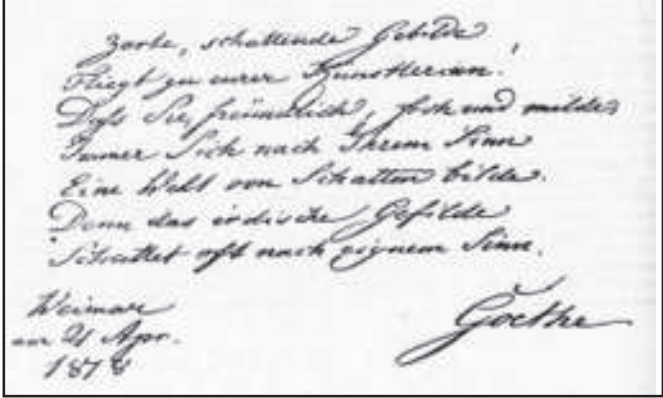 Zarte, schattende Gebilde,
Fliegt zu eurer Künstlerinn!
Daß Sie, freundlich, froh und milde,
Immer Sich nach Ihrem Sinn
Eine Welt von Schatten bilde.
Denn das irdische Gefilde
Schattet oft nach eignem Sinn.
Weimar
am 21 Apr.
1818
Goethe